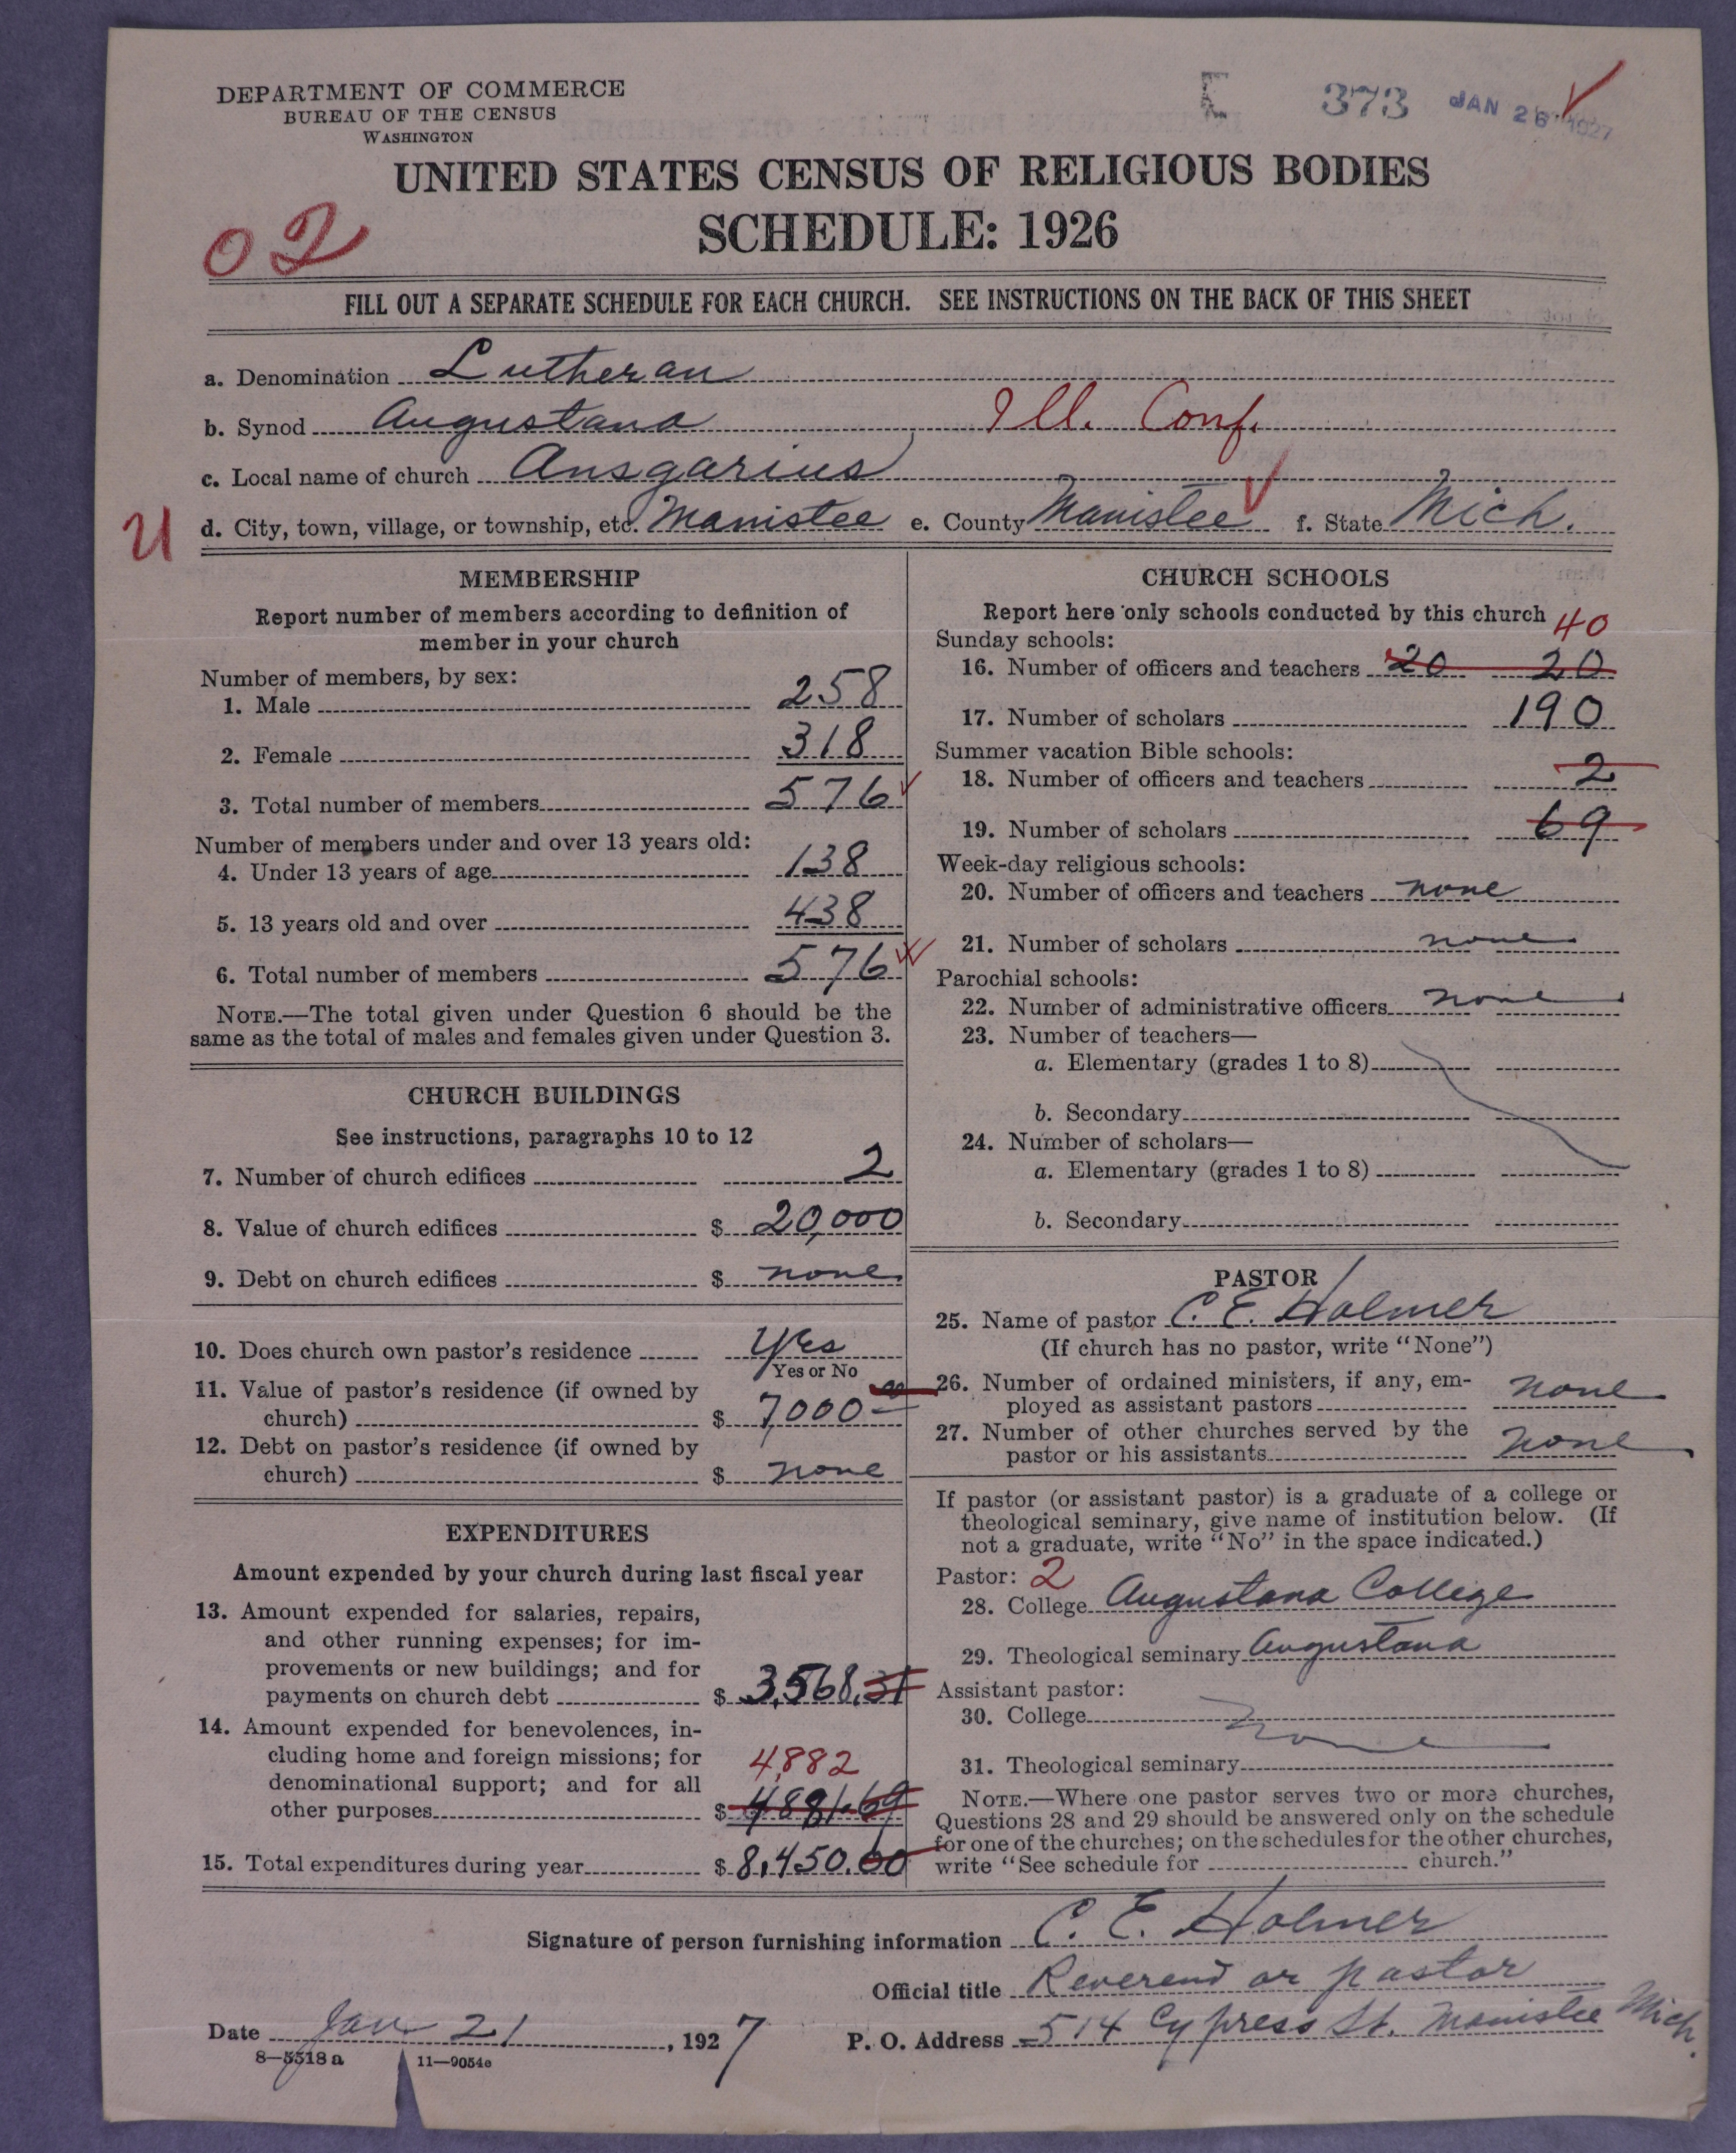 DEPARTMENT OF COMMERCE
BUREAU OF THE CENSUS
WASHINGTON
373 JAN 26 1927
UNITED STATES CENSUS OF RELIGIOUS BODIES
SCHEDULE: 1926
02
FILL OUT A SEPARATE SCHEDULE FOR EACH CHURCH. SEE INSTRUCTIONS ON THE BACK OF THIS SHEET
a. Denomination Lutheran
b. Synod Augustana Ill. Conf.
c. Local name of church Ansgarius
d. City, town, village, or township, etc. Manistee e. County Manistee f. State Mich.
MEMBERSHIP
Report number of members according to definition of
member in your church
Number of members, by sex:
1. Male 258
2. Female 318
3. Total number of members 576
Number of members under and over 13 years old:
4. Under 13 years of age 138
5. 13 years old and over 438
6. Total number of members 576
NOTE.—The total given under Question 6 should be the
same as the total of males and females given under Question 3.
CHURCH BUILDINGS
See instructions, paragraphs 10 to 12
7. Number of church edifices 2
8. Value of church edifices $ 20,000
9. Debt on church edifices $ none
10. Does church own pastor's residence Yes
Yes or No
11. Value of pastor's residence (if owned by
church) $ 7,000 00
12. Debt on pastor's residence (if owned by
church) $ none
EXPENDITURES
Amount expended by your church during last fiscal year
13. Amount expended for salaries, repairs,
and other running expenses; for im-
provements or new buildings; and for
payments on church debt $ 3,568.31
14. Amount expended for benevolences, in-
cluding home and foreign missions; for
denominational support; and for all
4,882
other purposes $ 4881.69
15. Total expenditures during year $ 8,450.00
CHURCH SCHOOLS
Report here only schools conducted by this church
40
Sunday schools:
16. Number of officers and teachers 20 20
17. Number of scholars 190
Summer vacation Bible schools:
18. Number of officers and teachers 2
19. Number of scholars 69
Week-day religious schools:
20. Number of officers and teachers none
21. Number of scholars none
Parochial schools:
22. Number of administrative officers none
23. Number of teachers—
a. Elementary (grades 1 to 8)
b. Secondary
24. Number of scholars—
a. Elementary (grades 1 to 8)
b. Secondary
PASTOR
25. Name of pastor C. E. Holmer
(If church has no pastor, write "None")
26. Number of ordained ministers, if any, em-
ployed as assistant pastors none
27. Number of other churches served by the
pastor or his assistants none
If pastor (or assistant pastor) is a graduate of a college or
theological seminary, give name of institution below. (If
not a graduate, write "No" in the space indicated.)
Pastor: 2
28. College Augustana College
29. Theological seminary Augustana
Assistant pastor:
30. College none
31. Theological seminary
NOTE.—Where one pastor serves two or more churches,
Questions 28 and 29 should be answered only on the schedule
for one of the churches; on the schedules for the other churches,
write "See schedule for church."
Signature of person furnishing information C. E. Holmer
Official title Reverend or pastor
Date Jan 21, 1927 P. O. Address 514 Cypress St. Manistee Mich.
8—5518 a 11—9054e